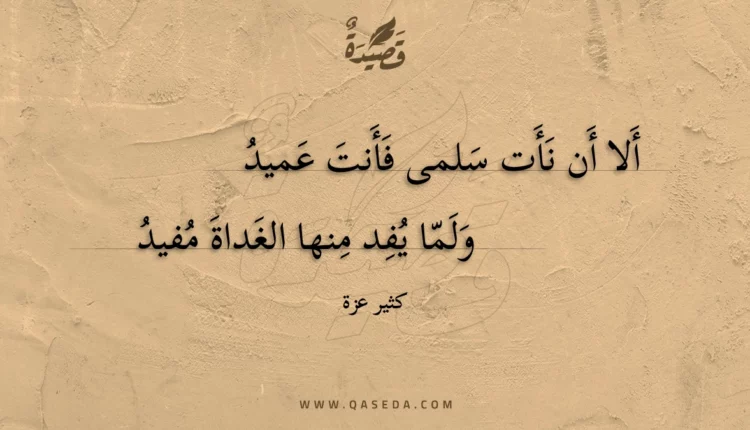 قَصِيدَةٌ
أَلا أَن نَأَت سَلمى فَأَنتَ عَميدُ
وَلَمّا يُفِد مِنها الغَداةَ مُفيدُ
كثير عزة
WWW.QASEDA.COM